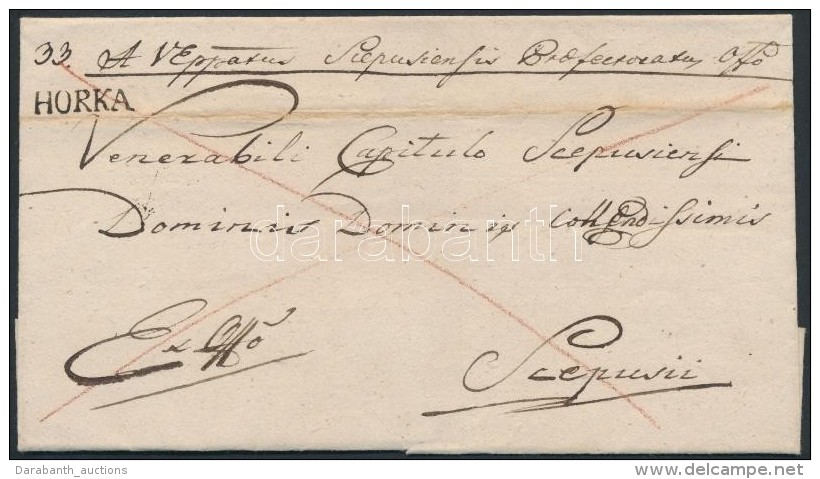 33. A VEppatus Scepusiensis Praefectoratus Offo
HORKA
Venerabili Capitulo Scepusiensi
Dominis Dominis Coll Endissimis
darabanth
Ex Offo
Scepusii
Darabanth_auctions
www.delcampe.net